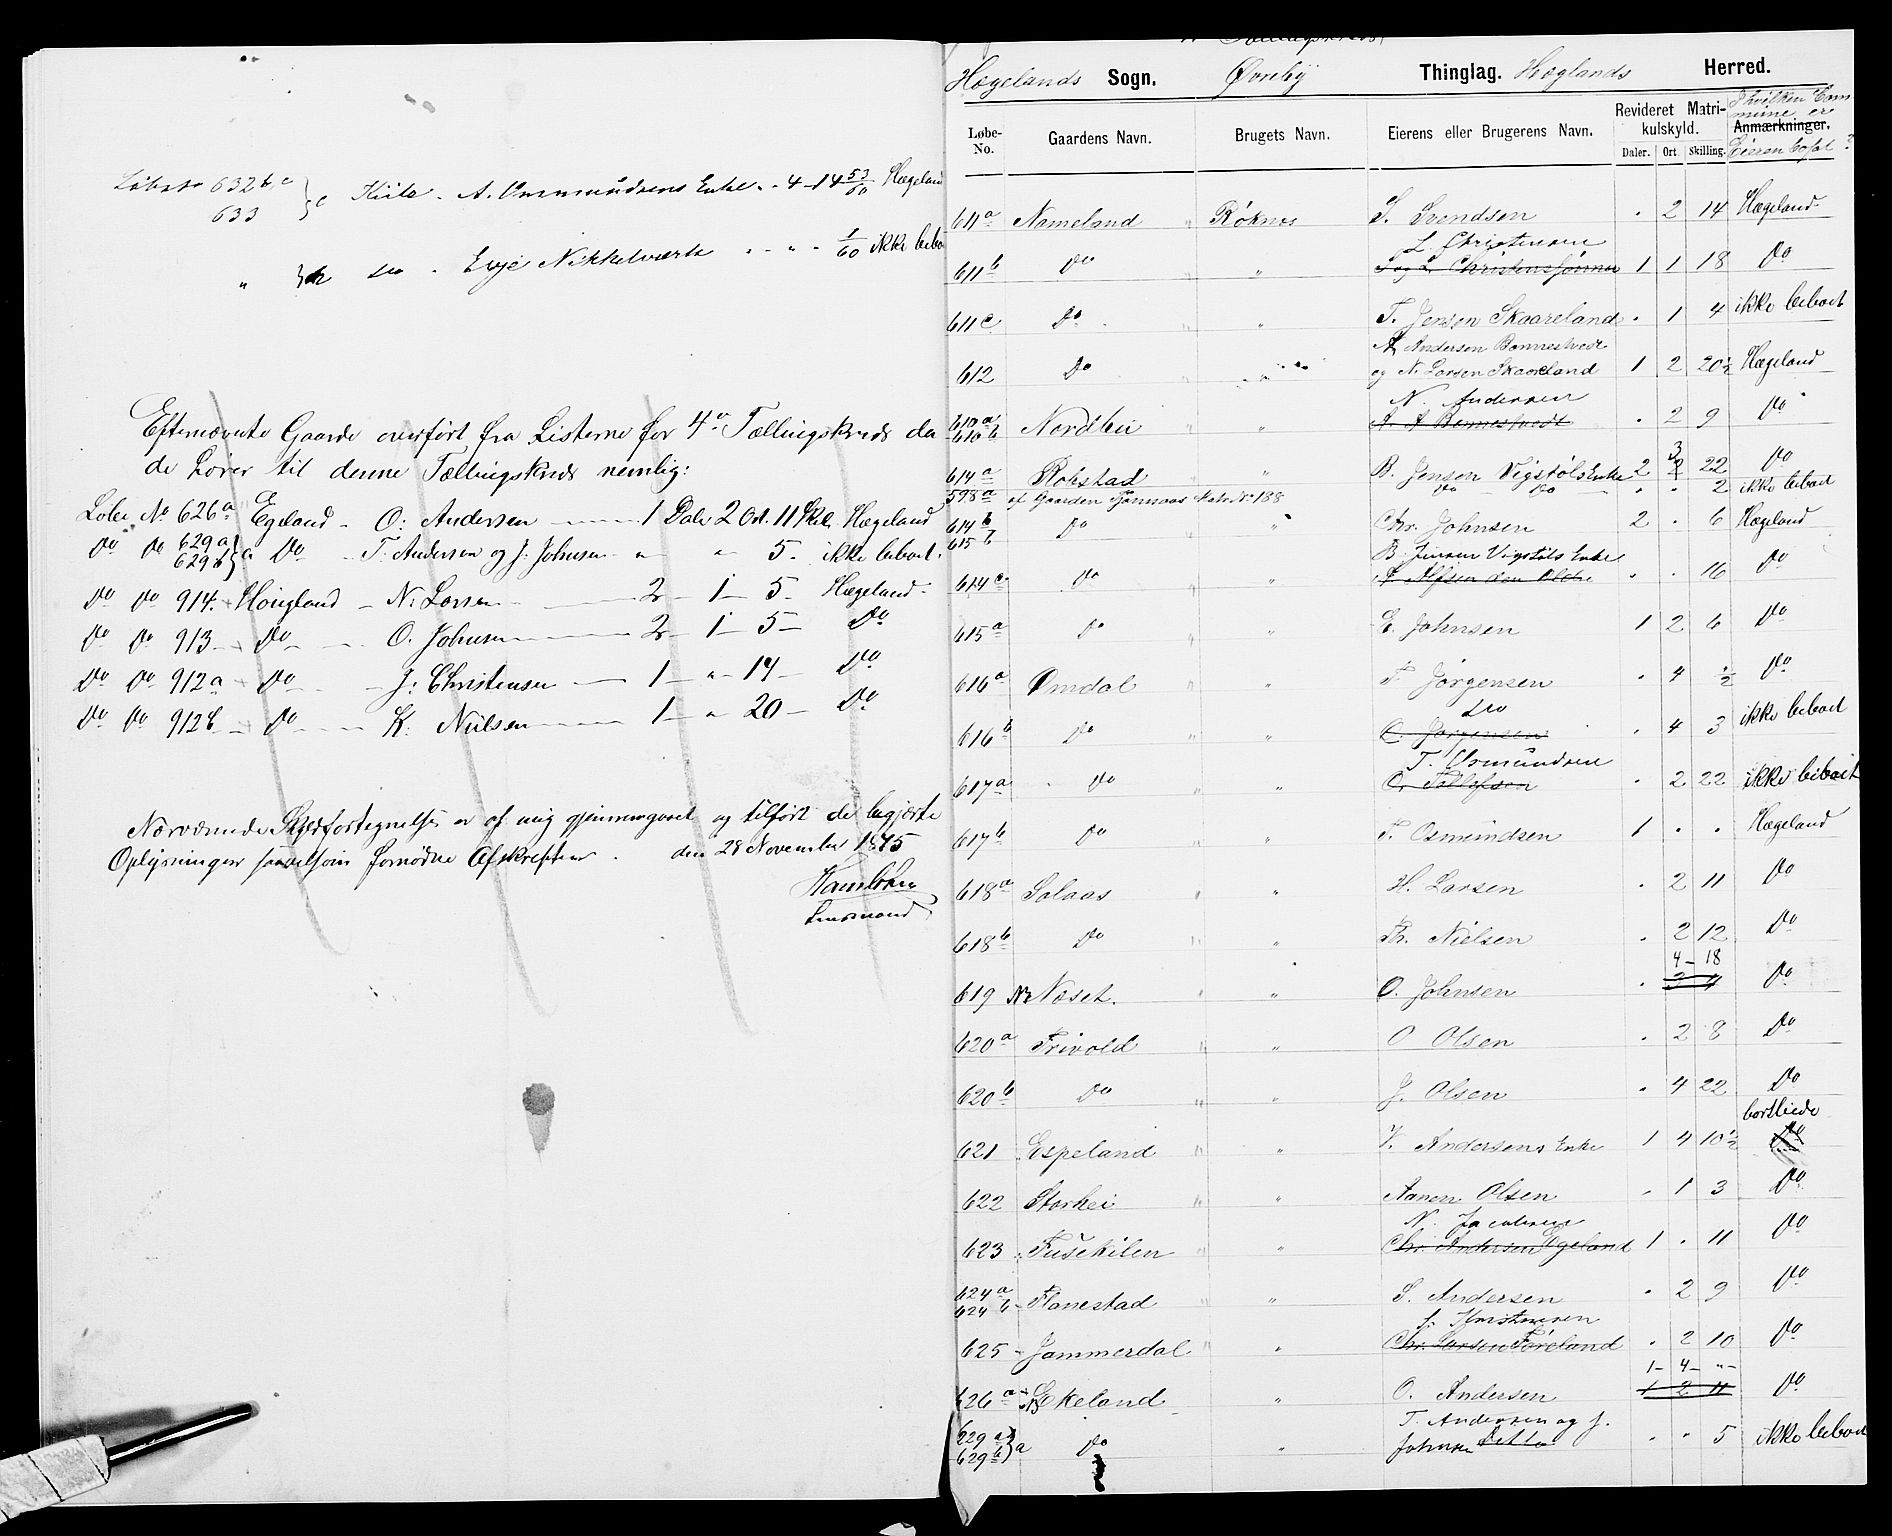 Løbeno 632 b, c } c Kiile - A. Osmundsens Enke " 4 - 14 53/60 Hægeland
633
" } d do - Evje Nikkelværk " - " - 1/60 ikke bebo
Efternævnte Gaarde overført fra Listerne for 4de Tællingskreds da
de hører til denne Tællingskreds nemlig:
Løbe No 626a Egeland - O: Andersen - 1 Daler 2 Ort. 11 Skil. Hægeland
Do Do 629a 629b } a Do - T: Andersen og J: Johnsen " " 5 - ikke beboet.
Do Do 914. Hougland - N: Larsen - 2 - 1 - 5 - Hægeland -
Do Do 913 - Do - O. Johnsen - 2 - 1 - 5 - Do
Do Do 912a - Do - J: Christensen - 1 - " - 14 - Do
Do Do 912b - Do - K: Nielsen - 1 - " - 20 - Do
Nærværende Skyldfortegnelse er af mig gjennemgaaet og tilført de begjærte
Oplysninger saavelsom fornødne Afskrifter. den 28 November 1875
Lensmand
Hægelands Sogn. Øvrebø Thinglag. Hæglands Herred.
Løbe-No. Gaardens Navn. Brugets Navn. Eierens eller Brugerens Navn. Revideret Matrikulskyld. Daler. Ort Skilling. Anmærkninger. I hvilken Commune er Eieren bosat?
611a Nameland " Røknes S. Svendsen . 2 14 Hægeland
L. Christensen
611b Do " T og L. Christenssønner 1 1 18 Do
611c Do " " T. Jensen Skaareland . 1 4 ikke beboet
A Andersen Bonnestvedt
612 Do " og N. Larsen Skaareland 1 2 20½ Hægeland
N. Andersen
610a 610b Nordbei " " A. A Bonnestvedt . 2 9 Do
3
614a Rokstad " B. Jensen Vigstøls Enke 2 2 22 Do
598a af Gaarden Tønnaas Matr. No 188 Do Do " " 2 ikke beboet
614b 615b Do " Chr. Johnsen 2 . 6 Hægeland
B. Jensen Vigstøls Enke
614c Do " . . 16 Do
615a Do " " E. Johnsen 1 2 6 Do
616a Omdal " " T Jørgensen . 4 ½ Do
do
616b Do " " C. Jørgensen . 4 3 ikke beboet
T. Osmundsen
617a Do " " O. Tellefsen . 2 22 ikke beboet
617b Do " " T. Osmundsen 1 . . Hægeland
618a Solaas " " H. Larsen . 2 11 Do
618b Do " " Th. Nielsen . 2 12 Do
4 - 18
619 Næset. " " O. Johnsen . Do
620a Frivold " " O Olsen . 2 8 Do
620b Do " " J. Olsen . 4 22 Do
621 Espeland " " V. Andersens Enke 1 4 10½ Do
622 Storhei " " Aanen Olsen . 1 3 Do
N. Jacobsen
623 Fusekilen " " Chr. Andersen Egeland 1 . 11 Do
624a 624b Flanestad " " S. Andersen . 2 9 Do
625 Jammerdal " " Chr. Larsen Føreland . 2 10 Do
1 - 4 - " -
626a Ekeland " O. Andersen 1 2 11 Do
T. Andersen og J.
629a 629b } a Do " Johnsen Ditto . . 5 ikke beboet